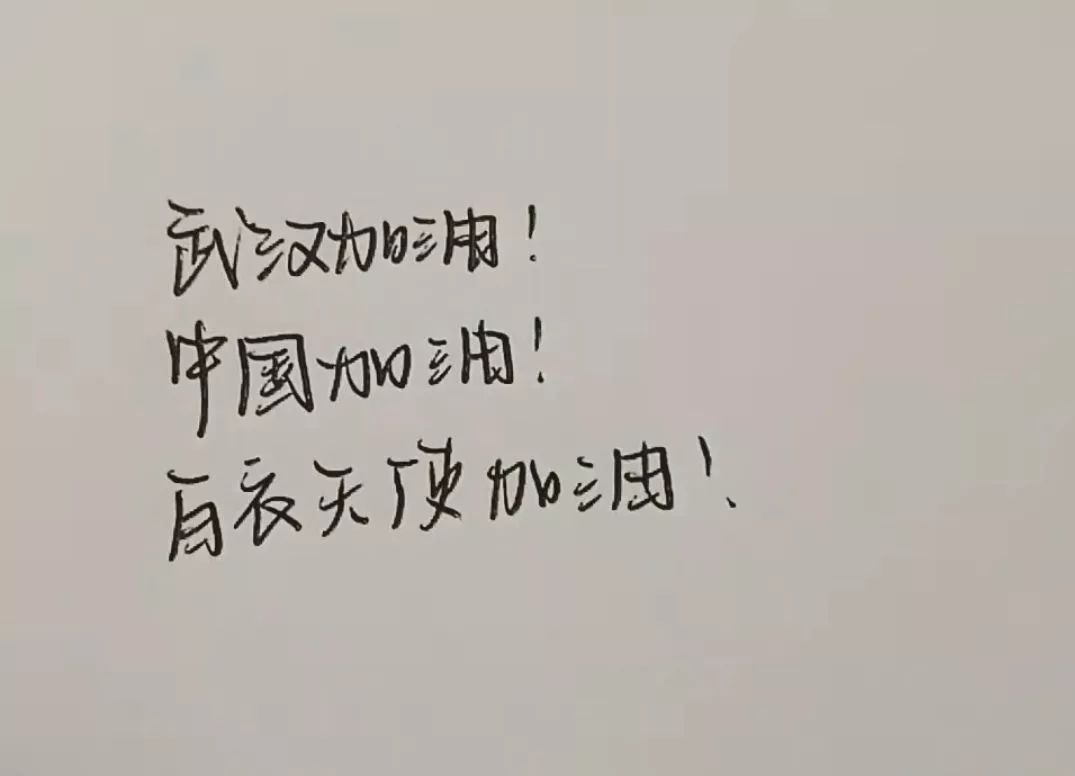 武汉加油！
中国加油！
白衣天使加油！